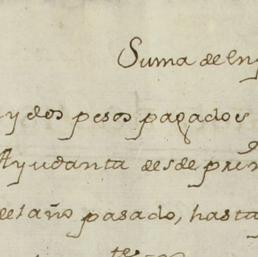 Suma de en
y dos pesos pagados
Ayudanta desde pri
del año pasado, hasta